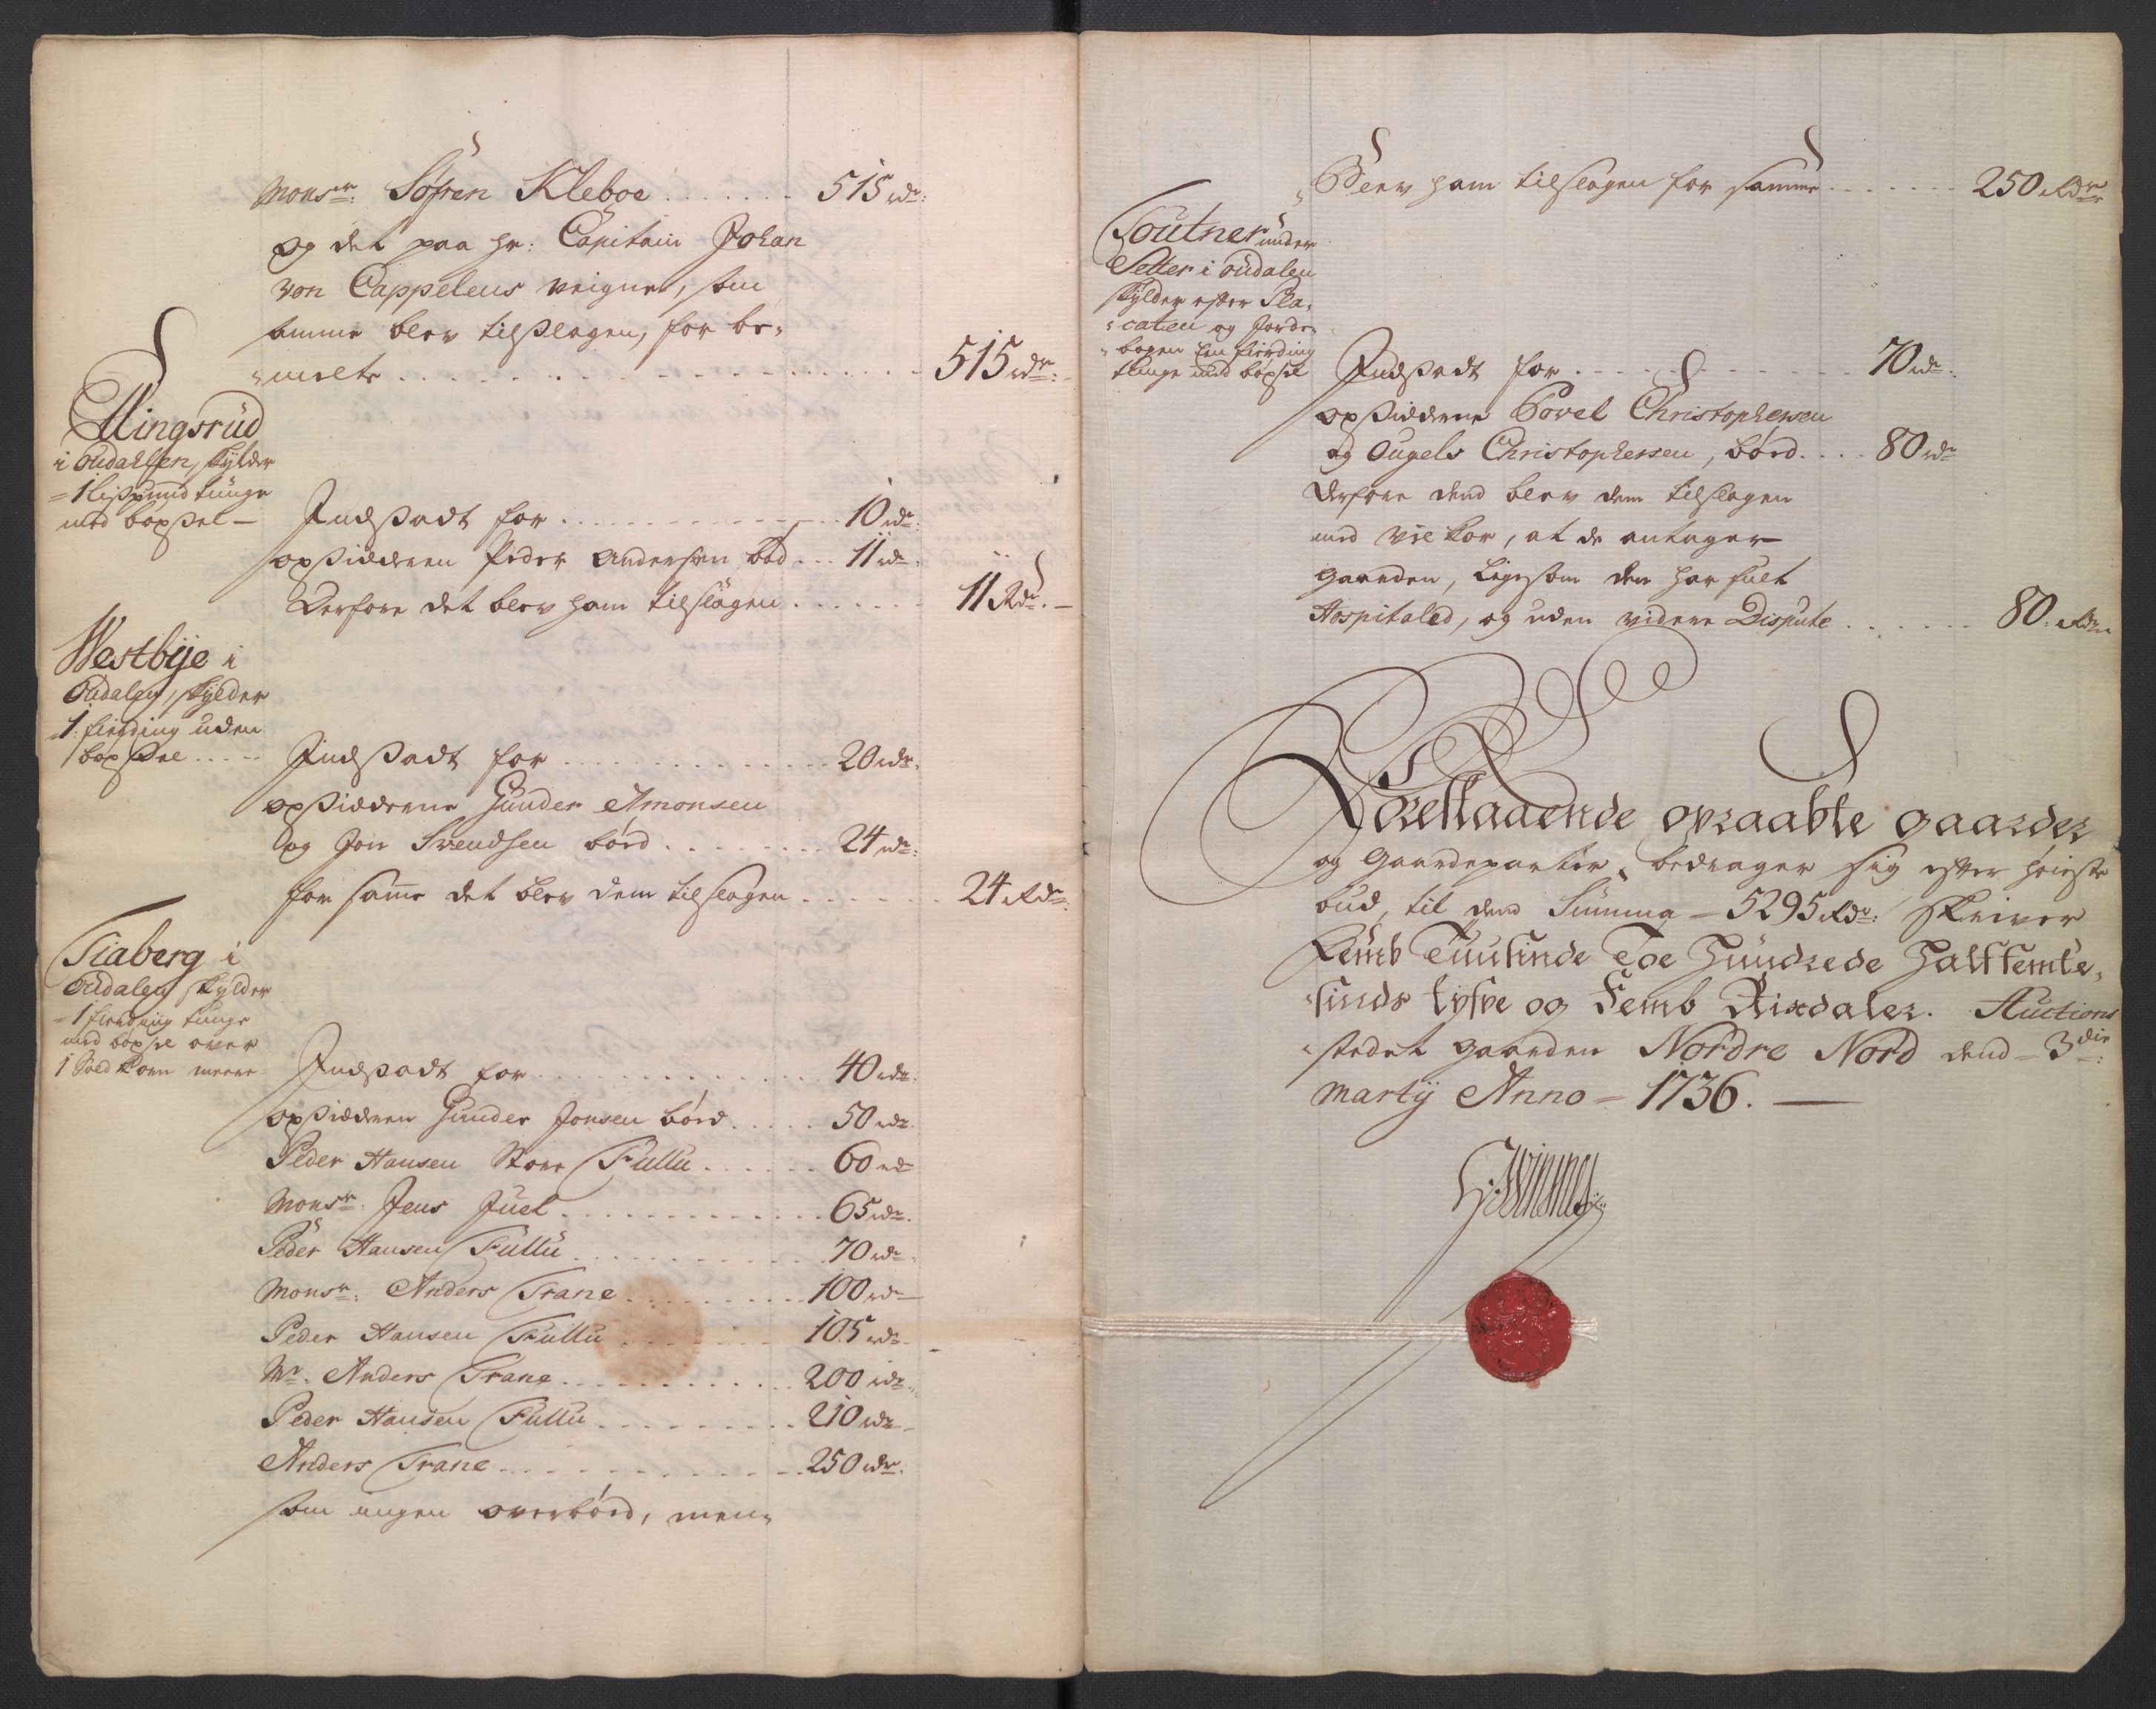 Monsr: Søfren Kleboe . . . . . . . 515 rdr:
og det paa hr: Capitain Johan
von Cappelens veigne, som
samme blev tilslagen, for be-
-melte . . . . . . . . . . . . 515 rdr:
Ellingsrud
i Oudahlsen, skylder
= 1 Lispund tunge
med böxsel —
Indsadt for . . . . . . . . . . 10 rdr:
opsidderen Peder Andersen bød . . . 11 rdr:
Derfore det blev ham tilslagen . . . . . . . 11 Rdr. —
Westbye i
Oudalen, skylder
1 fierding uden
böxsel . . . . .
Indsadt for . . . . . . . . . . . 20 rdr.
opsidderne Gunder Amonsen
og Jon Svendsen bøed . . . . . . . . 24 rdr:
for samme det blev dem tilslagen . . . . . . . 24 Rdr.
Tiaberg i
Oudalen skylder
= 1 fierding tunge
med böxsel over
1 Sold Korn meere
Indsadt for . . . . . . . . . . . 40 rdr.
opsidderen Gunder Jonsen bøed . . . . . 50 rdr.
Peder Hansen Store Fullu . . . . . . 60 rdr
Monsr: Jens Juel . . . . . . . . . . . . 65 rdr.
Peder Hansen Fullu . . . . . . . . . . . 70 rdr
Monsr: Anders Trane . . . . . . . . 100 rdr
Peder Hansen Fullu . . . . . . . . 105 rdr
Mr. Anders Trane . . . . . . . . . . . 200 rdr.
Peder Hansen Fullu . . . . . . . . . 210 rdr
Anders Trane . . . . . . . . . . . 250 rdr.
som ingen overbøed, men-
Blev ham tilslagen for samme . . . . . . . 250 Rdr
Toutner under
Setter i Oudalen
skylder efter Pla-
-caten og Jorde-
-bogen Een fierding
tunge med böxsel
Indsadt for . . . . . . . . . . . 70 rdr.
opsidderne Povel Christophersen
og Engels Christophersen, bøed . . . . 80 rdr
Derfore dend blev dem tilslagen
med Vilkor, at de antager
gaarden, ligesom den har fult
Hospitaled, og uden videre Dispute . . . . . . 80. Rdr
Forestaaende opraabte gaarder
og Gaardeparter, bedrager sig efter høieste
bud, til dend Summa = 5295 Rdr: skriver
Femb Tuusinde Toe Hundrede Halffemte-
-sinds tyfve og Femb Rixdaler. Auctions
-stedet gaarden Nordre Nord dend = 3die:
Martij Anno = 1736. —